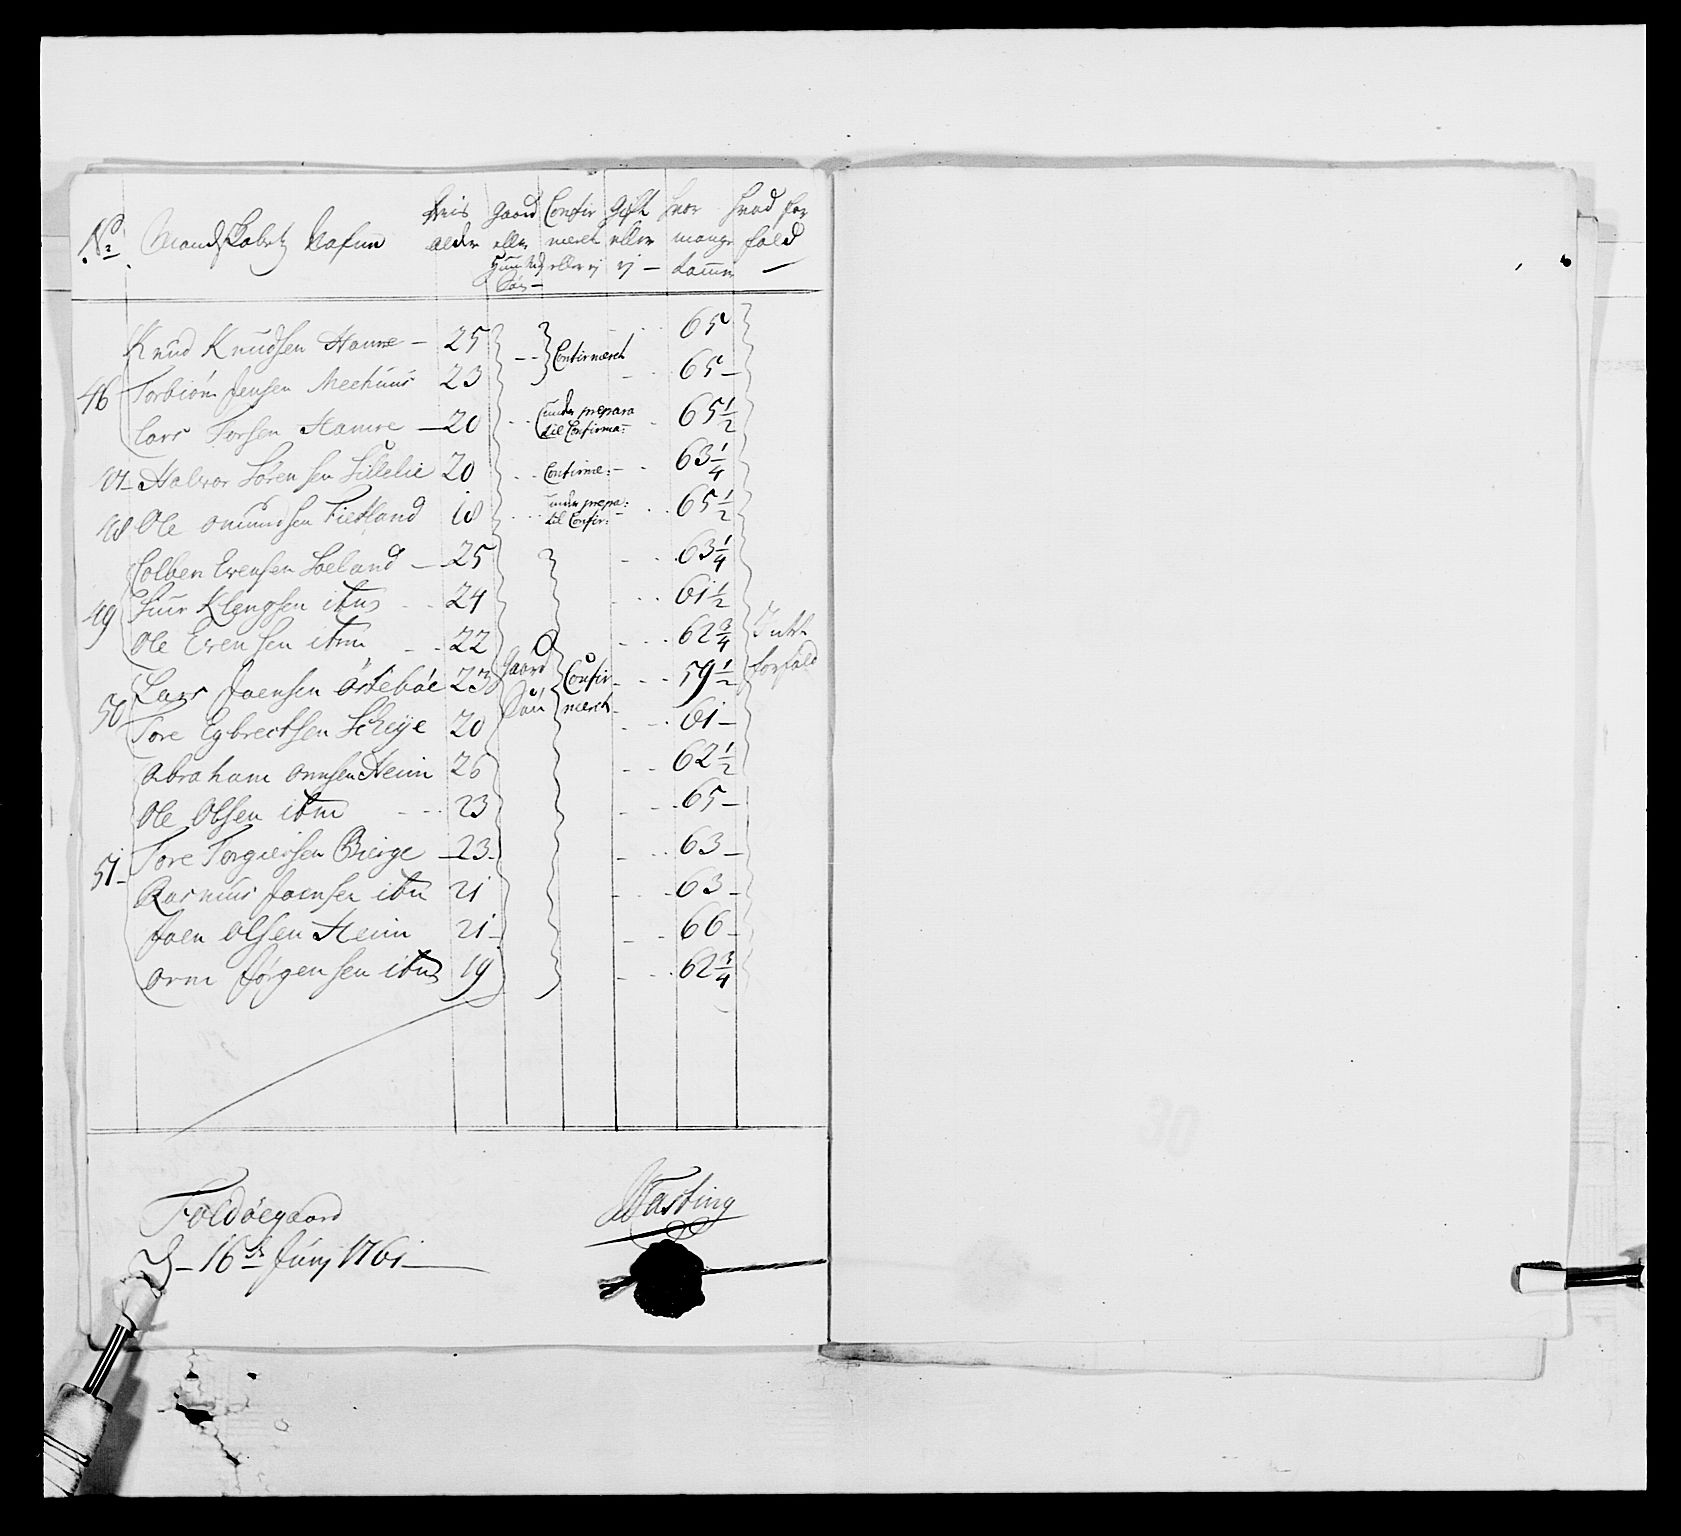 No. Mandskabets Nafne deris alder gaard eller Huusmds Søn Confir meret eller ej Gift eller ej hvor mange tommer hvad for fald
Knud Knudsen Hamre 25 Confirmeret 65
46 Torbiörn Jensen Meehuus 23 65
Lars Torsen Hamre 20 under prepara til Confirma: 65 1/2
47 Halvor Sörensen Lillelie 20 Confirme: 63 1/4
48 Ole omundsen Tietland 18 under prepa: til Confir: 65 1/2
Colben Evensen Soeland 25 63 1/4
49 Siur Klengsen ibm 24 61 1/2
Ole Evensen ibm 22 62 3/4 Intet
50 Lars Joensen Östeböe 23 gaard Søn Confir 59 1/2 forfald
Tore Egbrectsen Scheije 20 meret 61
Abraham omsen Heim 26 62 1/2
Ole Olsen ibm 23 65
51 Tore Torgiersen Bierge 23 63
Rasmus Joensen ibm 21 63
Joen Olsen Heim 21 66
Orm Jörgensen ibm 19 62 3/4
Foldöegaard
d 16de Junj 1761
Fasting